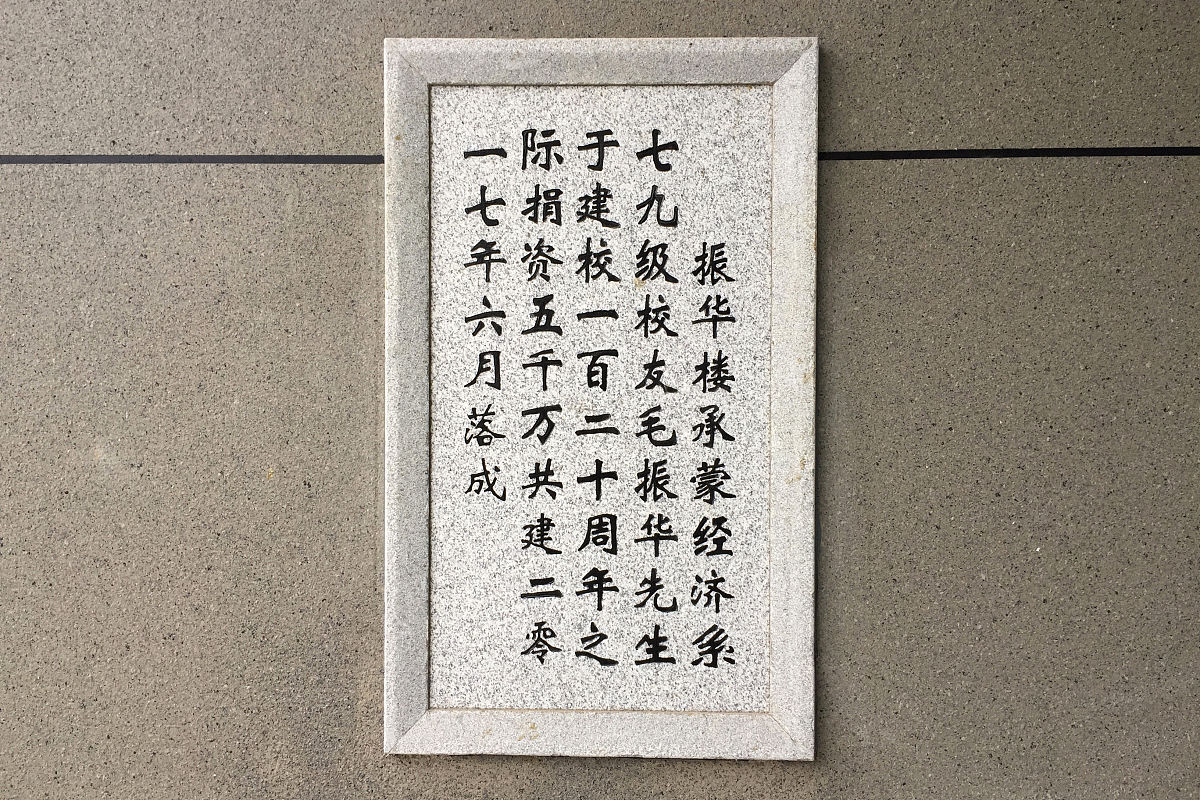 振华楼承蒙经济系
七九级校友毛振华先生
于建校一百二十周年之
际捐资五千万共建二零
一七年六月落成